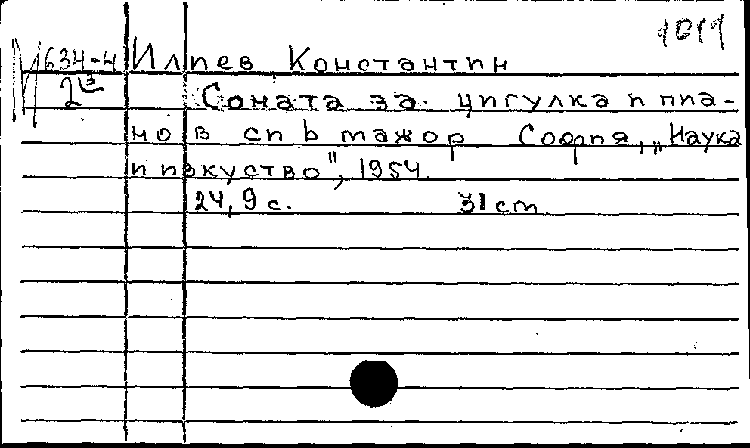 1011
М 634-4 Илиев, Константин
2 Соната за цигулка и пиа-
но в си b мажор София, „Наука
и изкуство", 1954.
24, 9 с. 31 cm